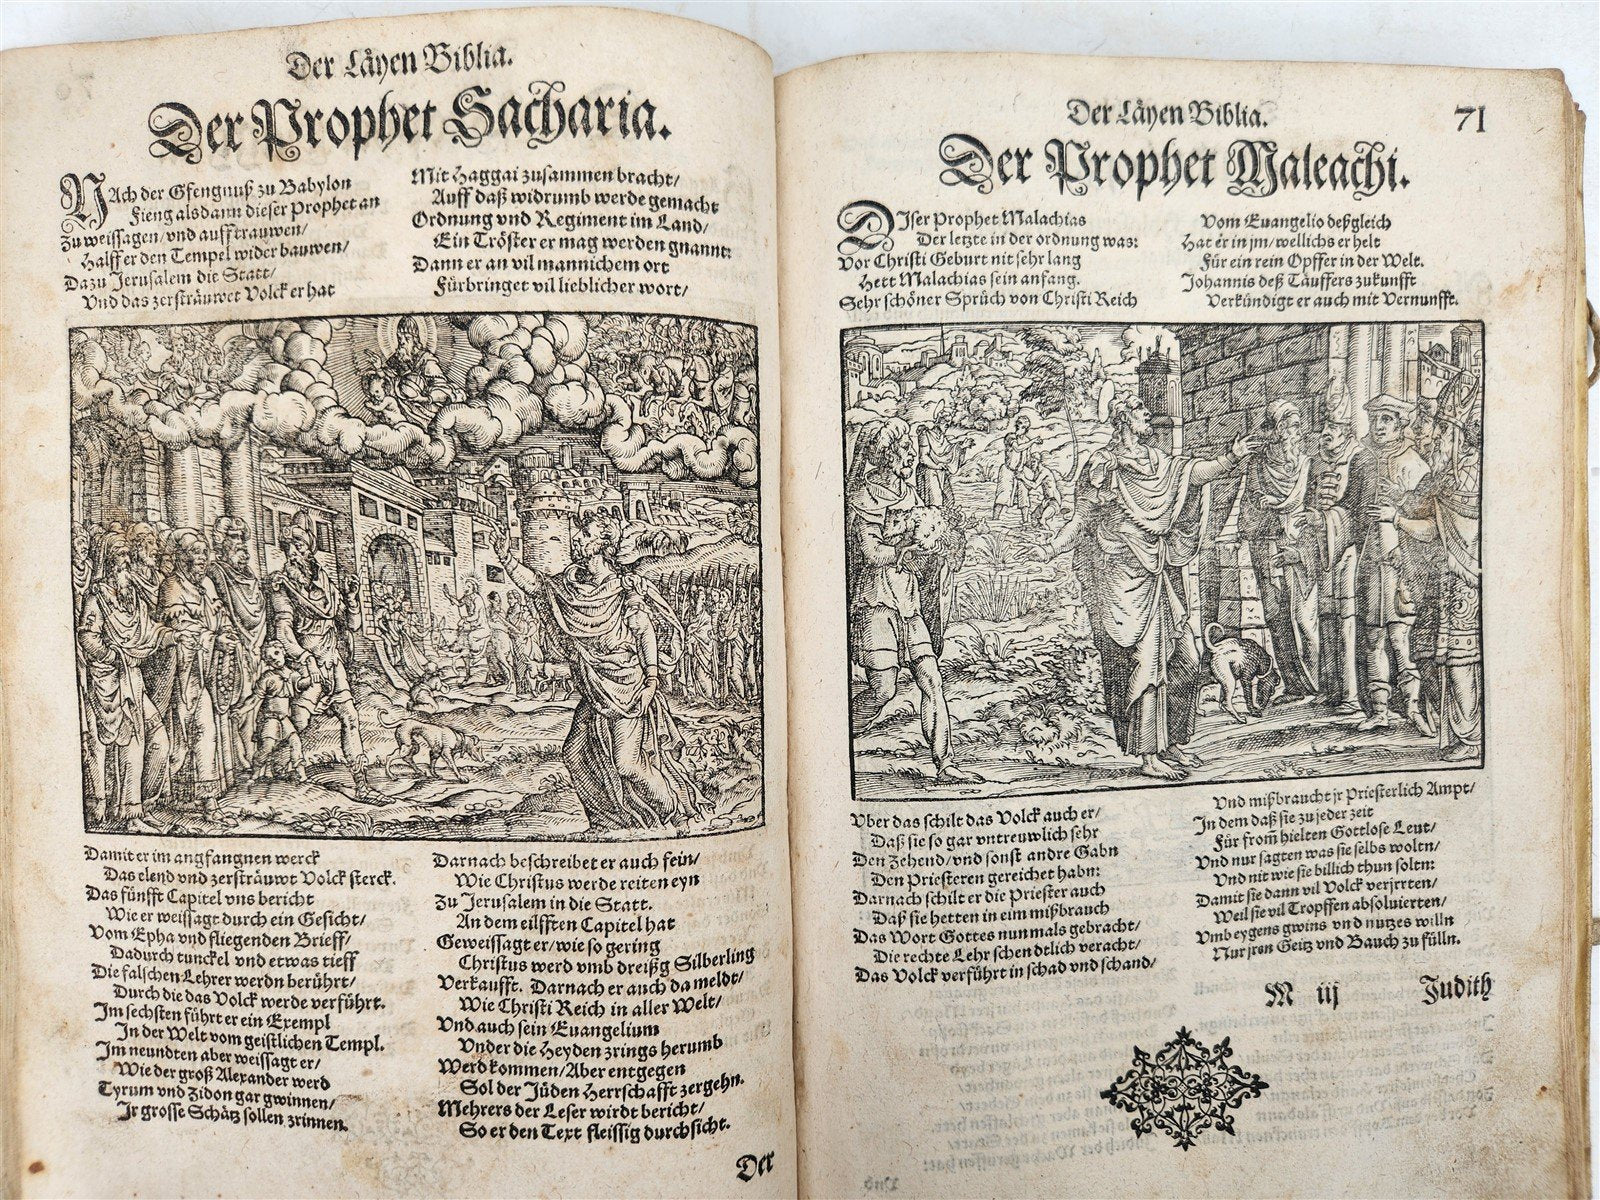 Der Läyen Biblia.
Der Prophet Sacharia.
NAch der Gfengnuß zu Babylon
Fieng als dann dieser Prophet an
Zu weissagen/ vnd aufftrauwen/
Halff er den Tempel wider bauwen/
Dazu Jerusalem die Statt/
Vnd das zersträuwet Volck er hat
Mit Haggai zusammen bracht/
Auff daß widrumb werde gemacht
Ordnung vnd Regiment im Land/
Ein Tröster er mag werden gnannt:
Dann er an vil mannichem ort
Fürbringet vil lieblicher wort/
Damit er im angfangnen werck
Das elend vnd zersträuwt Volck sterck.
Das fünfft Capitel vns bericht
Wie er weissagt durch ein Gesicht/
Vom Epha vnd fliegenden Brieff/
Dadurch tunckel vnd etwas tieff
Die falschen Lehrer werdn berührt/
Durch die das Volck werde verführt.
Im sechsten führt er ein Exempl
In der Welt vom geistlichen Templ.
Im neundten aber weissagt er/
Wie der groß Alexander werd
Tyrum vnd Zidon gar gwinnen/
Ir grosse Schätz sollen zrinnen.
Darnach beschreibet er auch fein/
Wie Christus werde reiten eyn
Zu Jerusalem in die Statt.
An dem eilfften Capitel hat
Geweissagt er/ wie so gering
Christus werd vmb dreißg Silberling
Verkaufft. Darnach er auch da meldt/
Wie Christi Reich in aller Welt/
Vnd auch sein Euangelium
Vnder die Heyden zrings herumb
Werd kommen/ Aber entgegen
Sol der Jüden Herrschafft zergehn.
Mehrers der Leser wirdt bericht/
So er den Text fleissig durchsicht.
Der
Der Läyen Biblia.
71
Der Prophet Maleachi.
DIser Prophet Malachias
Der letzte in der ordnung was:
Vor Christi Geburt nit sehr lang
Hett Malachias sein anfang.
Sehr schöner Sprüch von Christi Reich
Vom Euangelio deßgleich
Hat er in jm/ wellichs er helt
Für ein rein Opffer in der Welt.
Johannis deß Täuffers zukunfft
Verkündigt er auch mit Vernunfft.
Vber das schilt das Volck auch er/
Daß sie so gar vntreuwlich sehr
Den Zehend/ vnd sonst andre Gabn
Den Priesteren gereichet habn:
Darnach schilt er die Priester auch
Daß sie hetten in eim mißbrauch
Das Wort Gottes nun mals gebracht/
Die rechte Lehr schendtlich veracht/
Das Volck verführt in schad vnd schand/
Vnd mißbraucht jr Priesterlich Ampt/
In dem daß sie zu jeder zeit
Für from̃ hielten Gottlose Leut/
Vnd nur sagten was sie selbs woltn/
Vnd nit wie sie billich thun soltn:
Damit sie dann vil Volck verjrrten/
Weil sie vil Tropffen absoluierten/
Vmb eygens gwins vnd nutzes willn
Nur jren Geitz vnd Bauch zu fülln.
M iij
Judith